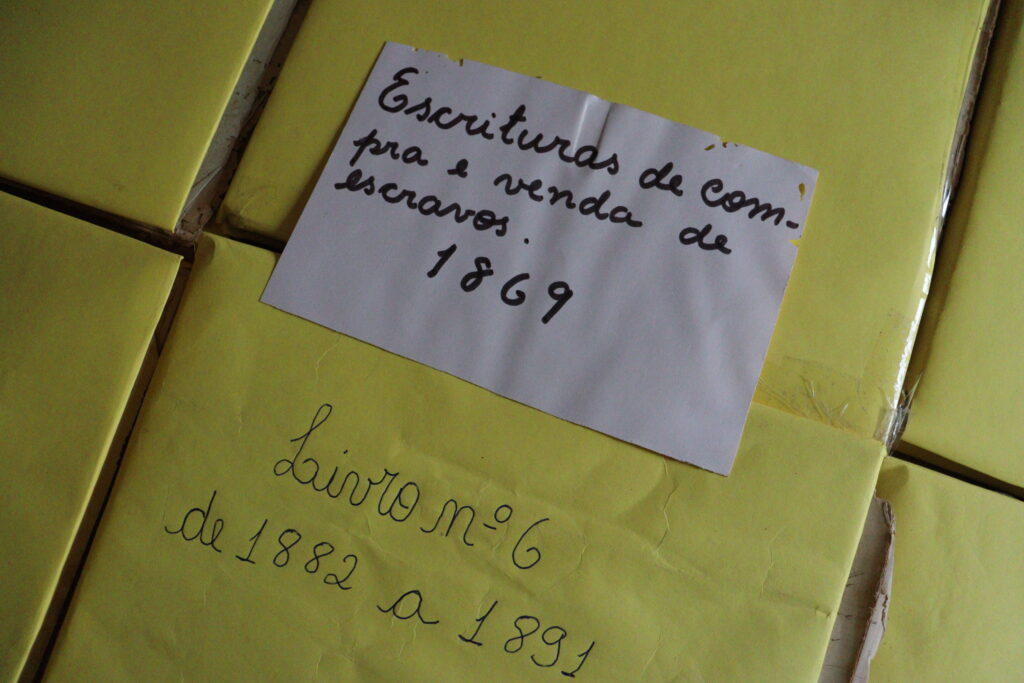 Escrituras de com-
pra e venda de
escravos.
1869
Livro nº 6
de 1882 a 1891